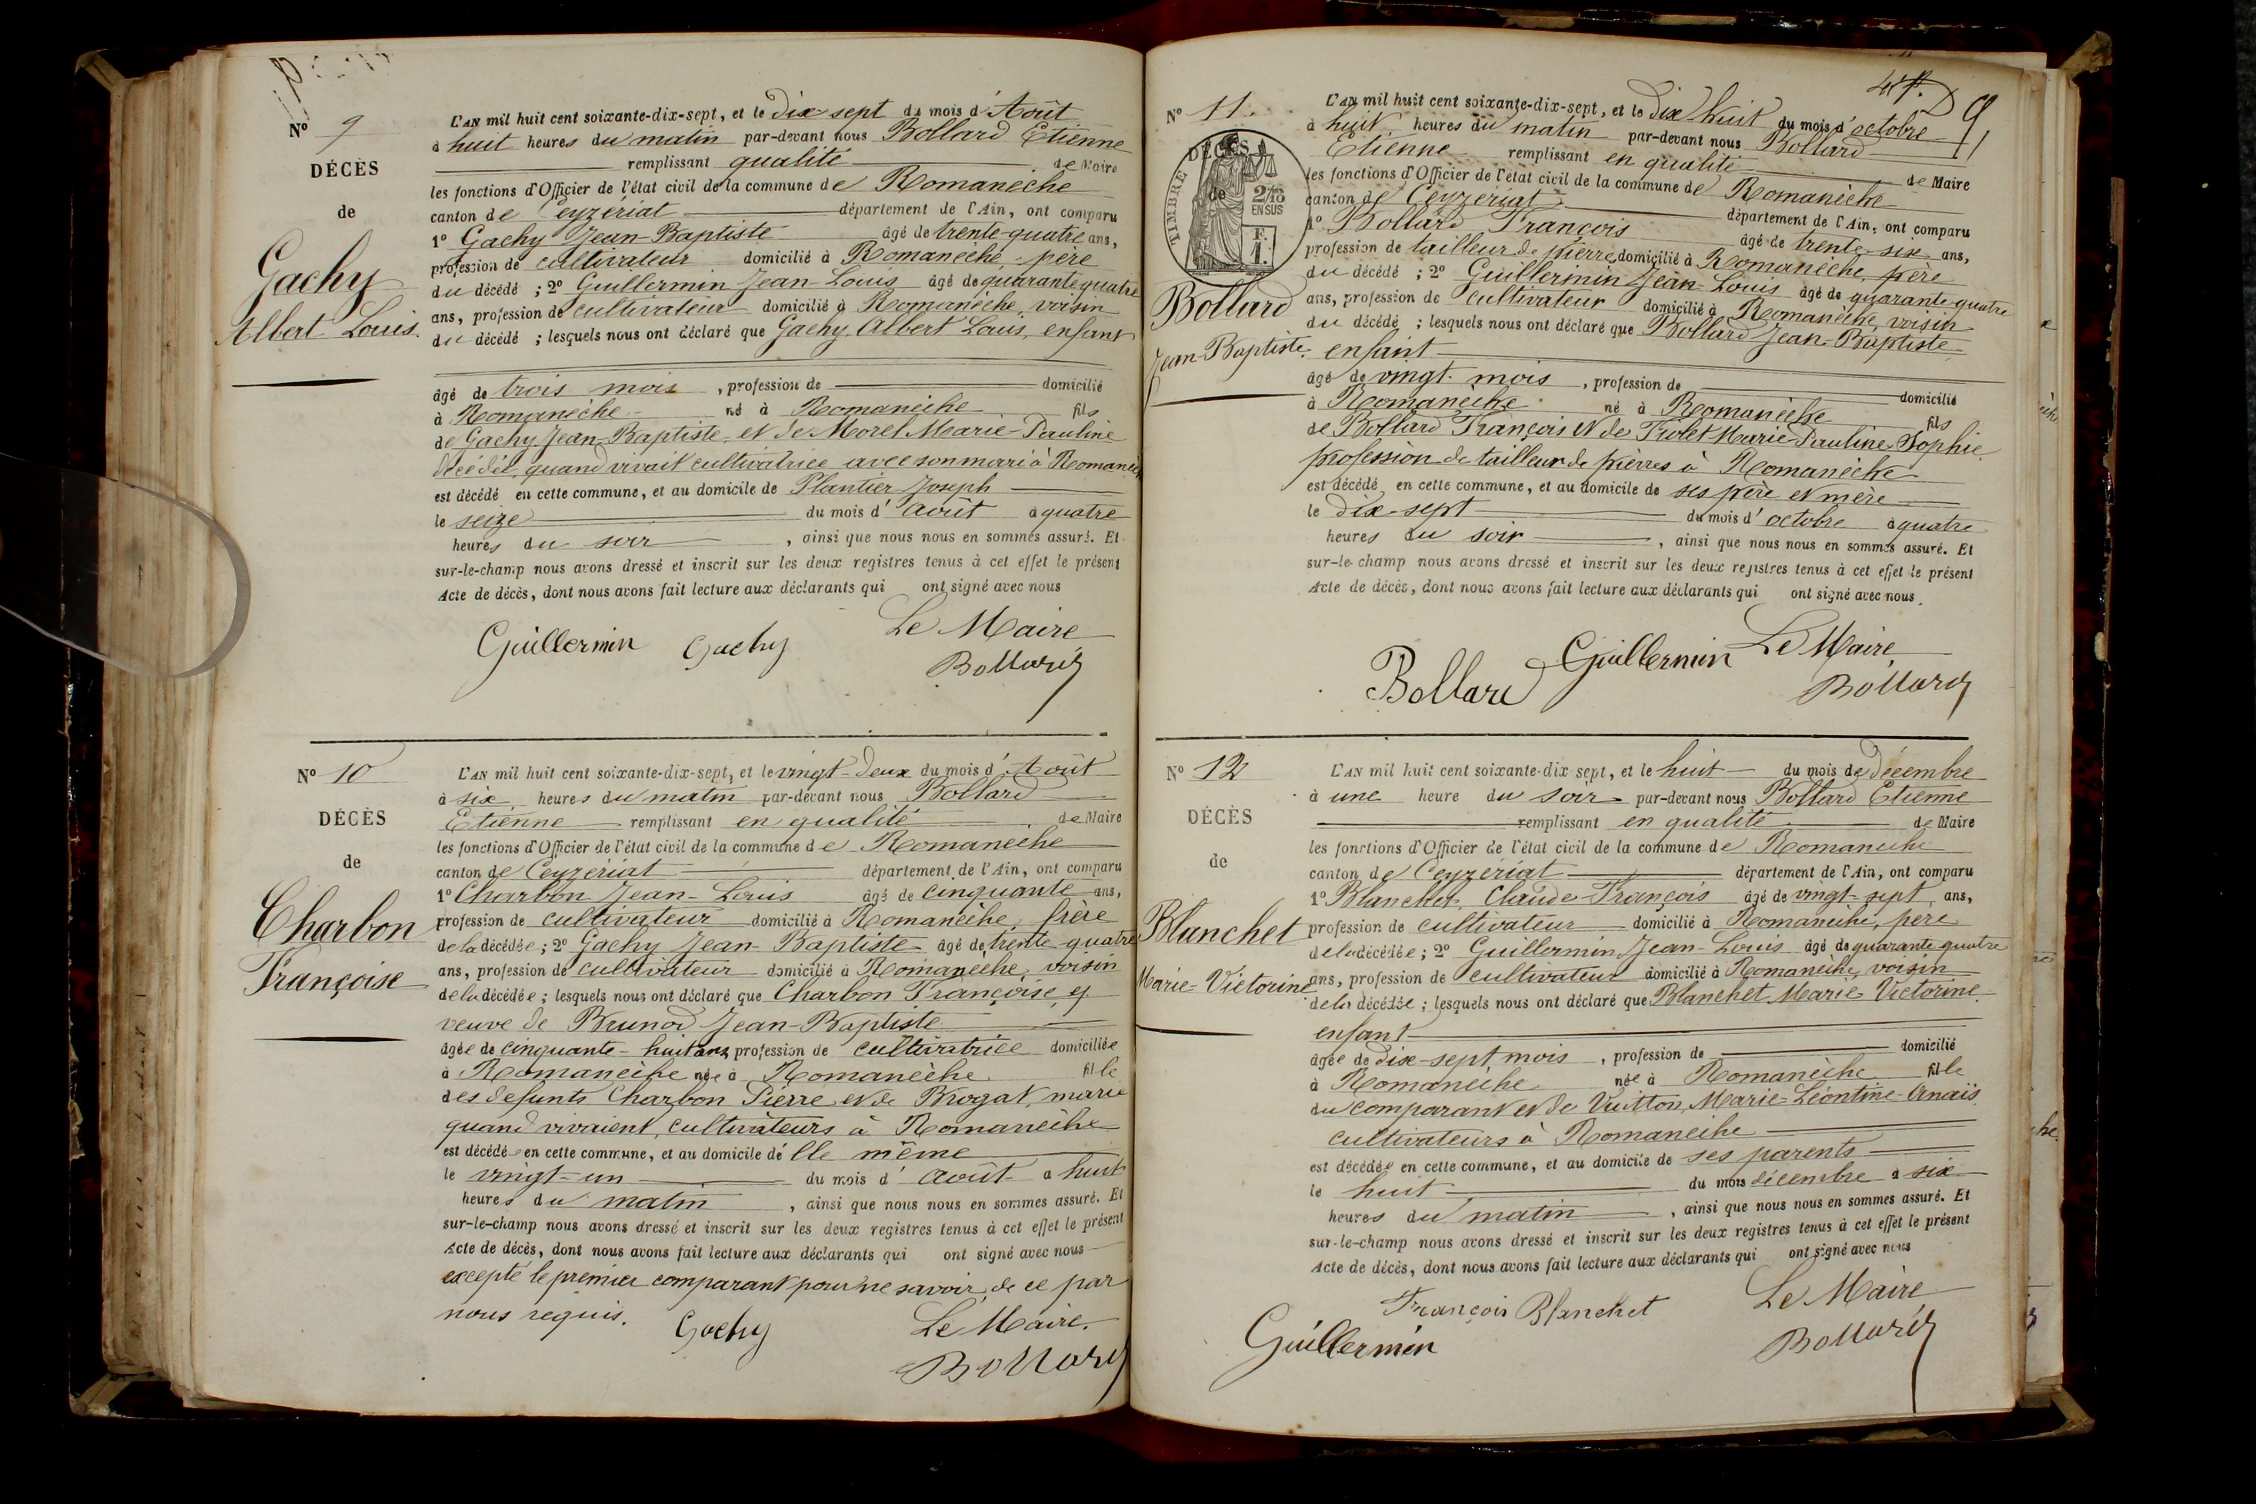 Nº 9
DÉCÈS
de
Gachy
Albert Louis.
L'AN mil huit cent soixante-dix-sept, et le dix sept du mois d'Août
à huit heures du matin par-devant nous Bollard Etienne
remplissant qualité de Maire
les fonctions d'Officier de l'état civil de la commune de Romanèche
canton de Ceyzériat département de l'Ain, ont comparu
1º Gachy Jean-Baptiste âgé de trente-quatre ans,
profession de cultivateur domicilié à Romanèche père
du décédé ; 2º Guillermin Jean-Louis âgé de quarante quatre
ans, profession de cultivateur domicilié à Romanèche, voisin
du décédé ; lesquels nous ont déclaré que Gachy, Albert Louis, enfant
âgé de trois mois, profession de domicilié
à Romanèche né à Romanèche fils
de Gachy Jean-Baptiste et de Morel Marie-Pauline
décédée quand vivait cultivatrice avec son mari à Romanèche
est décédé en cette commune, et au domicile de Plantier Joseph
le seize du mois d'août à quatre
heures du soir, ainsi que nous nous en sommes assuré. Et
sur-le-champ nous avons dressé et inscrit sur les deux registres tenus à cet effet le présent
Acte de décès, dont nous avons fait lecture aux déclarants qui ont signé avec nous
Le Maire
Guillermin Gachy
Bollard
Nº 10
DÉCÈS
de
Charbon
Françoise
L'AN mil huit cent soixante-dix-sept, et le vingt-deux du mois d'Août
à six heures du matin par-devant nous Bollard
Etienne remplissant en qualité de Maire
les fonctions d'Officier de l'état civil de la commune de Romanèche
canton de Ceyzériat département de l'Ain, ont comparu
1º Charbon Jean-Louis âgé de cinquante ans,
profession de cultivateur domicilié à Romanèche, frère
de la décédée ; 2º Gachy Jean-Baptiste âgé de trente-quatre
ans, profession de cultivateur domicilié à Romanèche, voisin
de la décédée ; lesquels nous ont déclaré que Charbon Françoise
veuve de Brunod Jean-Baptiste
âgée de cinquante-huit ans profession de cultivatrice domiciliée
à Romanèche née à Romanèche fille
des défunts Charbon Pierre et de Brogat, marie
quand vivaient, cultivateurs à Romanèche
est décédée en cette commune, et au domicile d'elle même
le vingt-un du mois d'août à huit
heures du matin, ainsi que nous nous en sommes assuré. Et
sur-le-champ nous avons dressé et inscrit sur les deux registres tenus à cet effet le présent
Acte de décès, dont nous avons fait lecture aux déclarants qui ont signé avec nous
excepté le premier comparant pour ne savoir, de ce par
nous requis.
Gachy Le Maire.
Bollard
Nº 11.
TIMBRE
DÉCÈS
de
2/10
EN SUS
F.
1.
Bollard
Jean-Baptiste.
L'AN mil huit cent soixante-dix-sept, et le Dix huit du mois d'octobre
à huit heures du matin par-devant nous Bollard
Etienne remplissant en qualité de Maire
les fonctions d'Officier de l'état civil de la commune de Romanèche
canton de Ceyzériat département de l'Ain, ont comparu
1º Bollard François âgé de trente-six ans,
profession de tailleur de pierre, domicilié à Romanèche, père
du décédé ; 2º Guillermin Jean-Louis âgé de quarante-quatre
ans, profession de cultivateur domicilié à Romanèche, voisin
du décédé ; lesquels nous ont déclaré que Bollard Jean-Baptiste
enfant
âgé de vingt mois, profession de domicilié
à Romanèche né à Romanèche fils
de Bollard François et de Marie-Pauline-Sophie
profession de tailleur de pierres à Romanèche
est décédé en cette commune, et au domicile de ses père et mère
le dix-sept du mois d'octobre à quatre
heures du soir, ainsi que nous nous en sommes assuré. Et
sur-le-champ nous avons dressé et inscrit sur les deux registres tenus à cet effet le présent
Acte de décès, dont nous avons fait lecture aux déclarants qui ont signé avec nous.
Bollard Guillermin Le Maire
Bollard
Nº 12
DÉCÈS
de
Blanchet
Marie-Victorine
L'AN mil huit cent soixante-dix sept, et le huit du mois de décembre
à une heure du soir par-devant nous Bollard Etienne
remplissant en qualité de Maire
les fonctions d'Officier de l'état civil de la commune de Romanèche
canton de Ceyzériat département de l'Ain, ont comparu
1º Blanchet, Claude-François âgé de vingt-sept ans,
profession de cultivateur domicilié à Romanèche, père
de la décédée ; 2º Guillermin Jean-Louis âgé de quarante quatre
ans, profession de cultivateur domicilié à Romanèche, voisin
de la décédée ; lesquels nous ont déclaré que Blanchet Marie Victorine
enfant
âgée de dix-sept mois, profession de domicilié
à Romanèche née à Romanèche fille
du comparant et de Vuitton, Marie-Léontine-Anaïs
cultivateurs à Romanèche
est décédée en cette commune, et au domicile de ses parents
le huit du mois décembre à six
heures du matin, ainsi que nous nous en sommes assuré. Et
sur-le-champ nous avons dressé et inscrit sur les deux registres tenus à cet effet le présent
Acte de décès, dont nous avons fait lecture aux déclarants qui ont signé avec nous
François Blanchet Le Maire
Guillermin Bollard